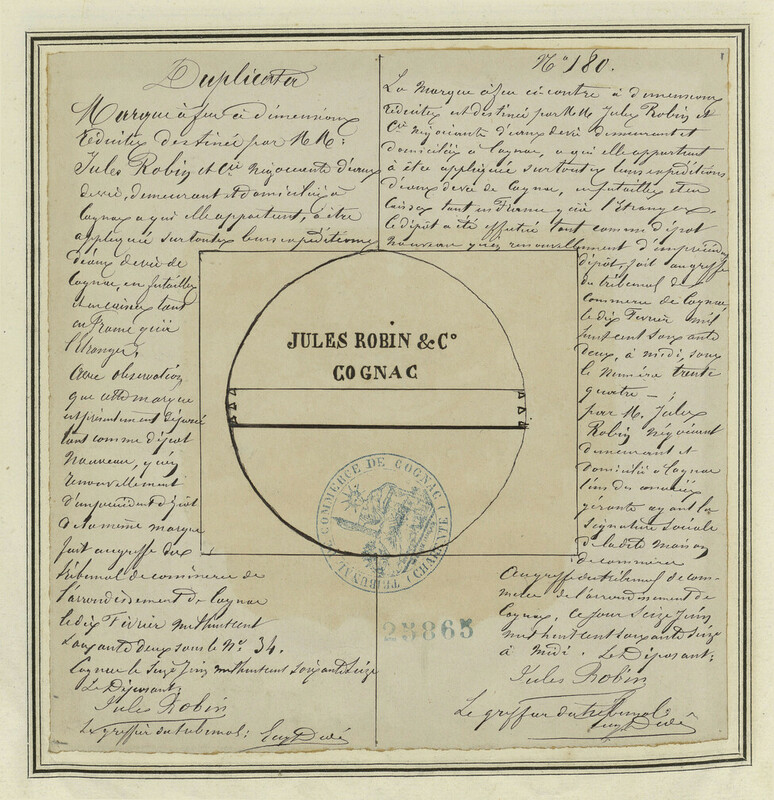 Duplicata
Marque à feu ci dimensions
réduites destinée par MM:
Jules Robin et Cie négociants d'eaux
de vie, demeurant et domiciliés à
Cognac à qui elle appartient, à être
appliquée sur toutes leurs expéditions
d'eaux de vie de
Cognac, en futailles
et en caisses tant
en France qu'à
l'étranger,
Avec observation
que cette marque
est présentement déposée
tant comme dépôt
nouveau, qu'en
renouvellement
d'un précédent dépôt
de la même marque
fait au greffe du
tribunal de commerce de
l'arrondissement de Cognac
le dix Février mil huit cent
soixante deux sous le No. 34.
Cognac le seize Juin mil huit cent soixante Seize
Le Déposant;
Jules Robin
Le greffier du tribunal;
No 180.
La Marque à feu ci contre à dimensions
réduites est destinée par MM Jules Robin et
Cie négociants d'eaux de vie demeurant et
domiciliés à Cognac, à qui elle appartient
à être appliquée sur toutes leurs expéditions
d'eaux de vie de Cognac, en futailles et en
caisses tant en France qu'à l'étranger.
le dépôt a été effectué tant comme dépôt
nouveau qu'en renouvellement d'un précédent
dépôt, fait au greffe
du tribunal de
commerce de Cognac
le dix Février mil
huit cent soixante
deux, à midi, sous
le numéro trente
quatre —;
par M. Jules
Robin négociant
demeurant et
domicilié à Cognac
l'un des associés
gérants ayant la
signature sociale
de la dite maison
de commerce
Au greffe du tribunal de com-
merce de l'arrondissement de
Cognac, ce jour seize Juin
mil huit cent soixante seize
à midi. Le Déposant;
Jules Robin
Le greffier du tribunal
JULES ROBIN & Co
COGNAC
TRIBUNAL DE COMMERCE DE COGNAC (CHARENTE)
25865